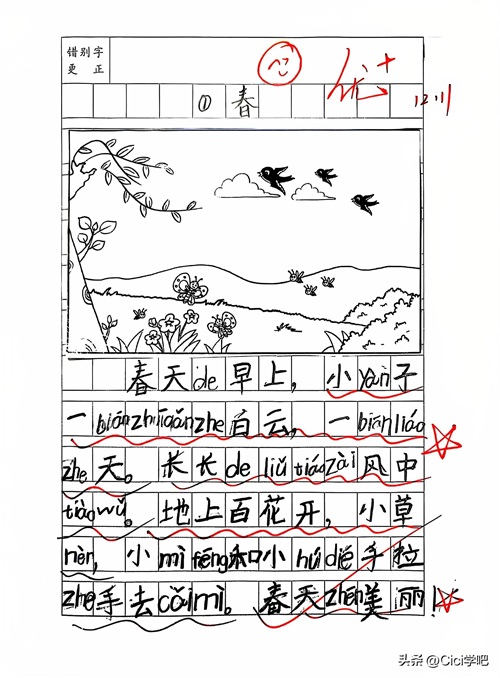 错别字
更正
优+
12.11
① 春
春天de早上，小yàn子
一biānzhuīgǎnzhe白云，一biānliáo
zhe天。长长de liǔ tiáo zài风中
tiào wǔ。地上百花开，小草
nèn，小mì fēng和小hú dié手拉
zhe手去cǎi mì。春天zhēn美丽！
头条 @Cici学吧